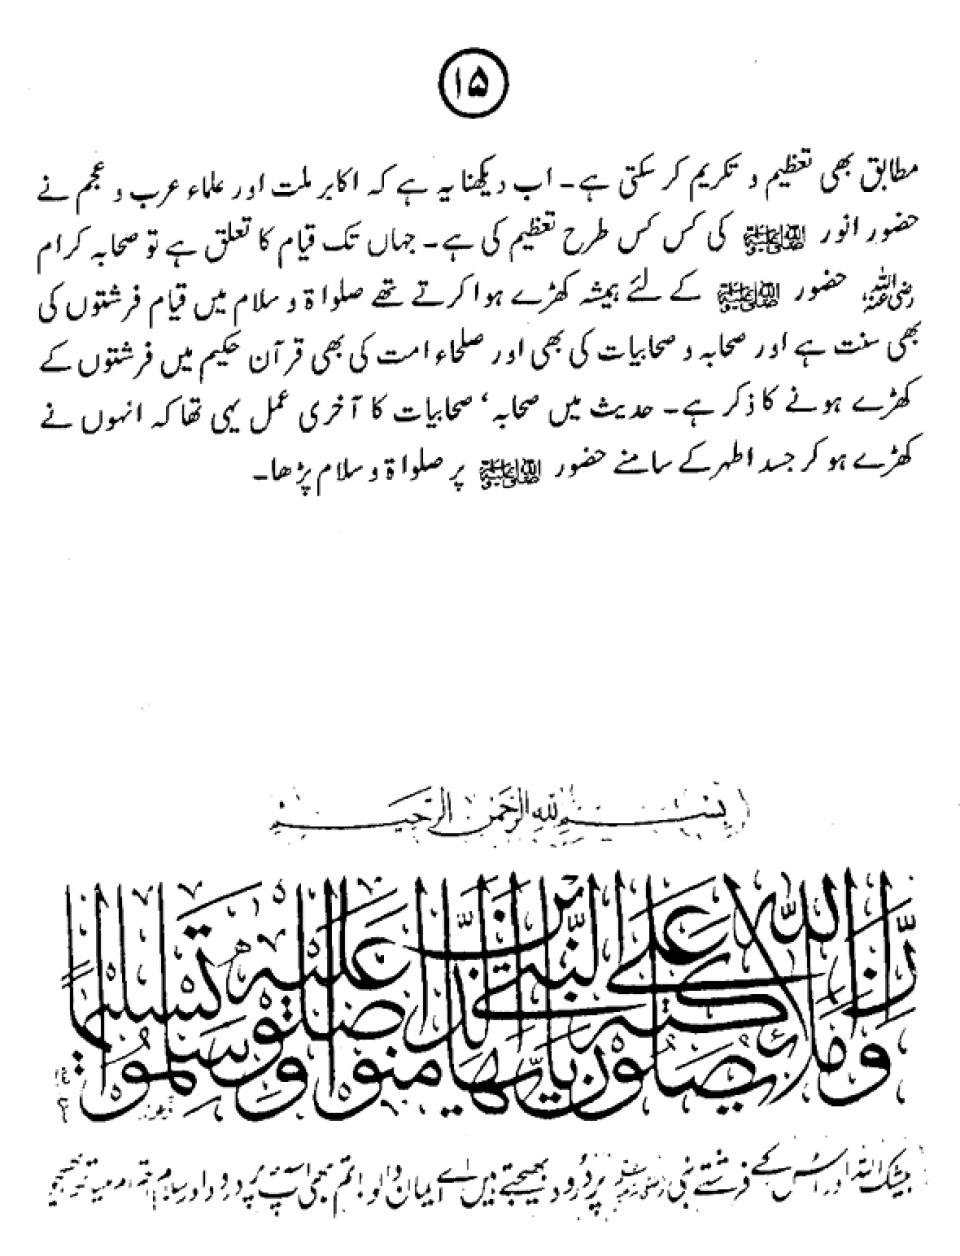 ۱۵
مطابق بھی تعظیم و تکریم کر سکتی ہے۔ اب دیکھنا یہ ہے کہ اکابر ملت اور علماء عرب و عجم نے
حضور انور ﷺ کی کس کس طرح تعظیم کی ہے۔ جہاں تک قیام کا تعلق ہے تو صحابہ کرام
رضی اللہ عنہم حضور ﷺ کے لئے ہمیشہ کھڑے ہوا کرتے تھے صلواۃ و سلام میں قیام فرشتوں کی
بھی سنت ہے اور صحابہ و صحابیات کی بھی اور صلحاء امت کی بھی قرآن حکیم میں فرشتوں کے
کھڑے ہونے کا ذکر ہے۔ حدیث میں صحابہ‘ صحابیات کا آخری عمل یہی تھا کہ انہوں نے
کھڑے ہو کر جسد اطہر کے سامنے حضور ﷺ پر صلواۃ و سلام پڑھا۔
بسم الله الرحمن الرحيم
إن الله وملائكته يصلون على النبي يا أيها الذين آمنوا صلوا عليه وسلموا تسليما
بیشک اللہ اور اس کے فرشتے نبی پر درود بھیجتے ہیں اے ایمان والو تم بھی آپ پر درود اور سلام